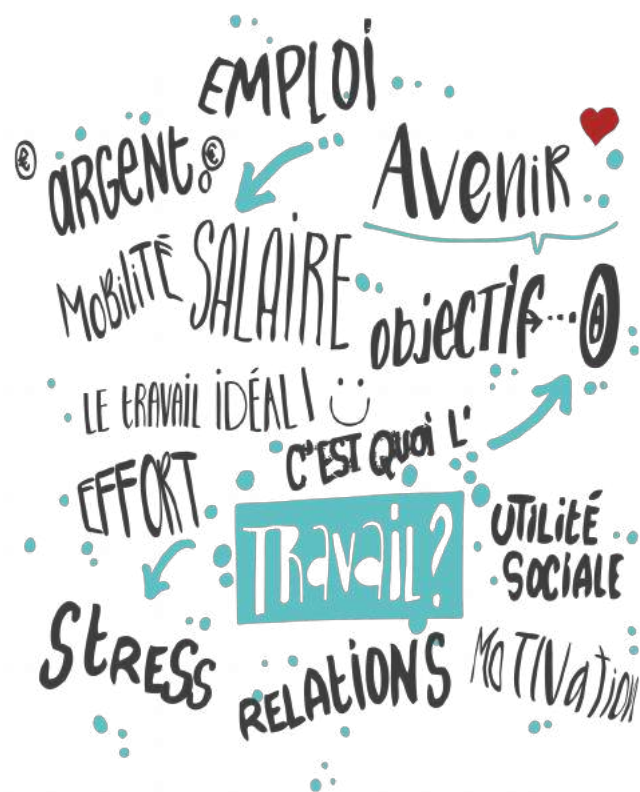 EMPLOI
ARGENT
AVENIR
MOBILITÉ
SALAIRE
OBJECTIF
LE TRAVAIL IDÉAL !
C'EST QUOI L'
EFFORT
TRAVAIL ?
UTILITÉ
SOCIALE
STRESS
RELATIONS
MOTIVATION